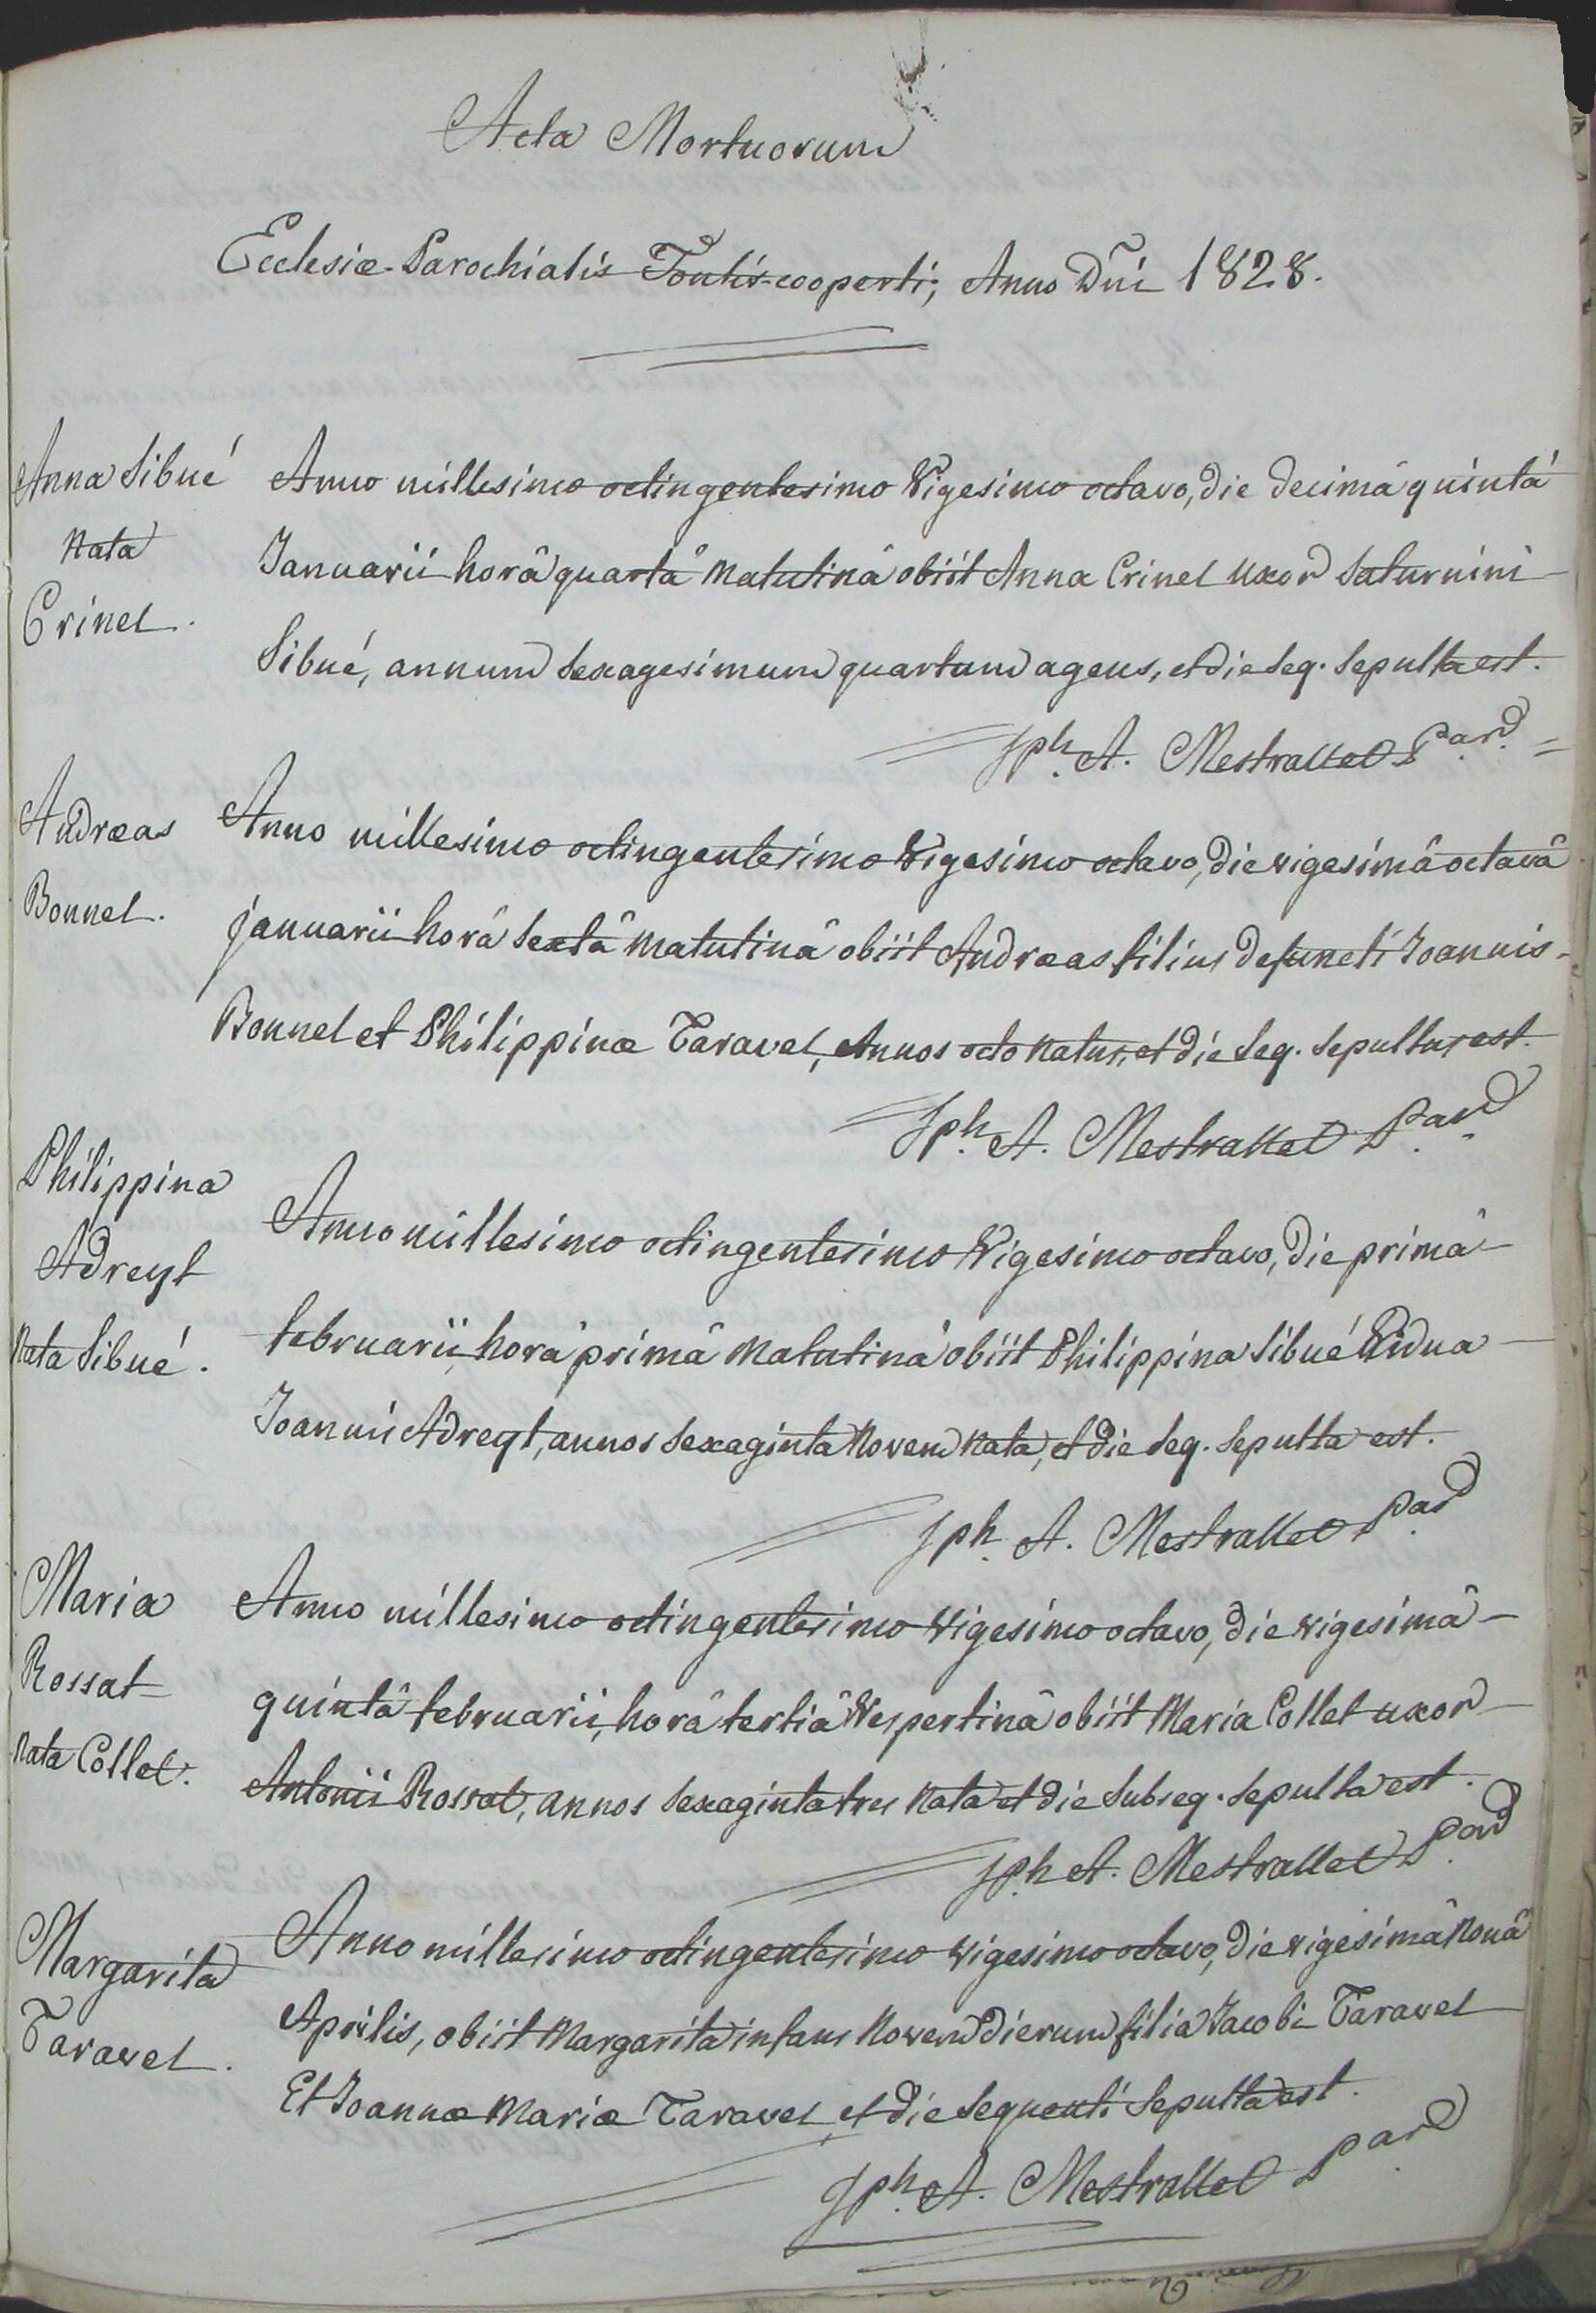 Acta Mortuorum
Ecclesiæ Parochialis Fontis-cooperti, Anno Dñi 1828.
Anna Sibué
nata
Crinel.
Anno millesimo octingentesimo Vigesimo octavo, die decimâ quintâ
Januarii horâ quartâ matutinâ obiit Anna Crinel uxor Saturnini
Sibué, annum sexagesimum quartum agens, et die seq. sepulta est.
Jph. A. Mestrallet Par.
Andræas
Bonnel.
Anno millesimo octingentesimo Vigesimo octavo, die vigesimâ octavâ
januarii horâ sextâ matutinâ obiit Andræas filius defuncti Joannis
Bonnel et Philippinæ Taravel, Annos octo natus, et die seq. sepultus est.
Jph. A. Mestrallet Par.
Philippina
Adreyt
nata Sibué.
Anno millesimo octingentesimo Vigesimo octavo, die primâ
februarii, horâ primâ matutinâ obiit Philippina Sibué Vidua
Joannis Adreyt, annos sexaginta novem nata, et die seq. sepulta est.
Jph. A. Mestrallet Par.
Maria
Rossat
nata Collet.
Anno millesimo octingentesimo vigesimo octavo, die vigesimâ
quintâ februarii, horâ tertiâ Vespertinâ obiit Maria Collet uxor
Antonii Rossat, annos sexaginta tres nata et die subseq. sepulta est.
Jph. A. Mestrallet Par.
Margarita
Taravel.
Anno millesimo octingentesimo vigesimo octavo, die vigesimâ nonâ
Aprilis, obiit Margarita infans novem dierum filia Jacobi Taravel
Et Joannæ Mariæ Taravel et die sequenti sepulta est.
Jph. A. Mestrallet Par.